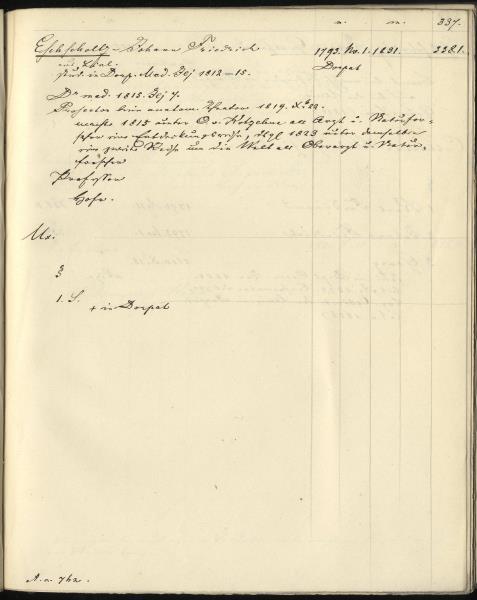 n. m. 337.
Eschscholtz - Johann Friedrich 1793. No. 1. 1831. 2281.
aus Livl. Dorpat
stud. in Dorp. Med. Jej 1812-15.
Dr med. 1815. Jej 7.
Prosector beim anatom. Theater 1819.
machte 1815 unter O v. Kotzebue als Arzt u. Naturfor-
scher eine Entdeckungsreise, 1823 unter demselben
eine zweite Reise um die Welt als Oberarzt u. Natur-
forscher
Professor
Hofr.
Ux.
§
1. S.
+ in Dorpat
A. a. 762.